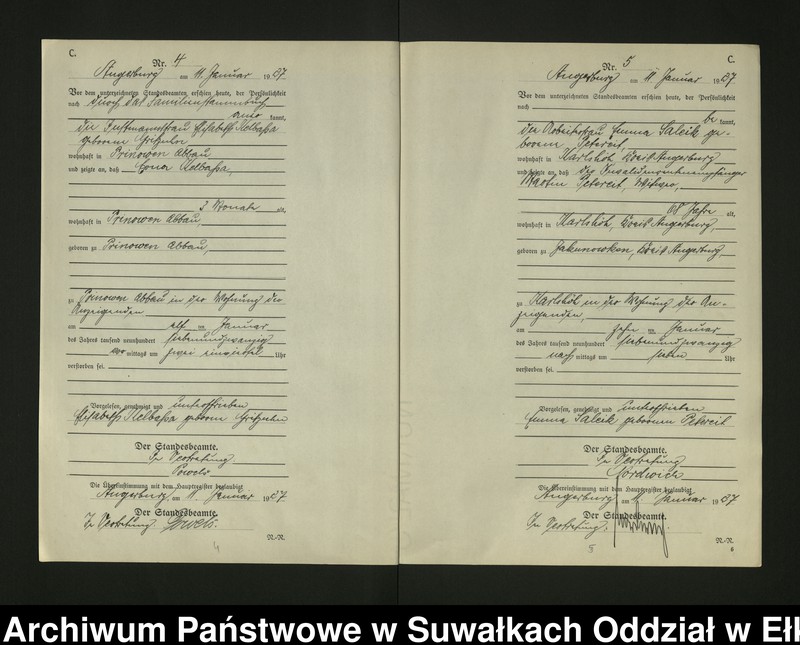 C.
Nr. 4
Angerburg am 11. Januar 1927
Vor dem unterzeichneten Standesbeamten erschien heute, der Persönlichkeit
nach durch das Familienstammbuch
kannt,
die Elisabeth
geborene
wohnhaft in Prinowen Abbau
und zeigte an, daß
3 Monate alt,
wohnhaft in Prinowen Abbau,
geboren zu Prinowen Abbau,
zu Prinowen Abbau in der Wohnung der
Anzeigenden
am elf ten Januar
des Jahres tausend neunhundert siebenundzwanzig
mittags um zwei einviertel Uhr
verstorben sei.
Vorgelesen, genehmigt und unterschrieben
Elisabeth geborene
Der Standesbeamte.
In Vertretung
Die Übereinstimmung mit dem Hauptregister beglaubigt
Angerburg, am 11. Januar 1927
Der Standesbeamte.
In Vertretung
N.-N.
4
C.
Nr. 5
Angerburg am 11. Januar 1927
Vor dem unterzeichneten Standesbeamten erschien heute, der Persönlichkeit
nach
be kannt,
die Arbeiterfrau Emma Saleik ge-
borene Petereit,
wohnhaft in Karlshöh, Kreis Angerburg
und zeigte an, daß der Invalidenrentenempfänger
Martin Petereit, Witwer,
68 Jahre alt,
wohnhaft in Karlshöh, Kreis Angerburg,
geboren zu Jakunowken, Kreis Angerburg,
zu Karlshöh in der Wohnung der An-
zeigenden,
am zehn ten Januar
des Jahres tausend neunhundert siebenundzwanzig
nach mittags um sieben Uhr
verstorben sei.
Vorgelesen, genehmigt und unterschrieben
Emma Saleik geborenen Petereit
Der Standesbeamte.
In Vertretung
Die Übereinstimmung mit dem Hauptregister beglaubigt
Angerburg am 11. Januar 1927
Der Standesbeamte.
In Vertretung.
N.-N.
5
6
Archiwum Państwowe w Suwałkach Oddział w Ełk